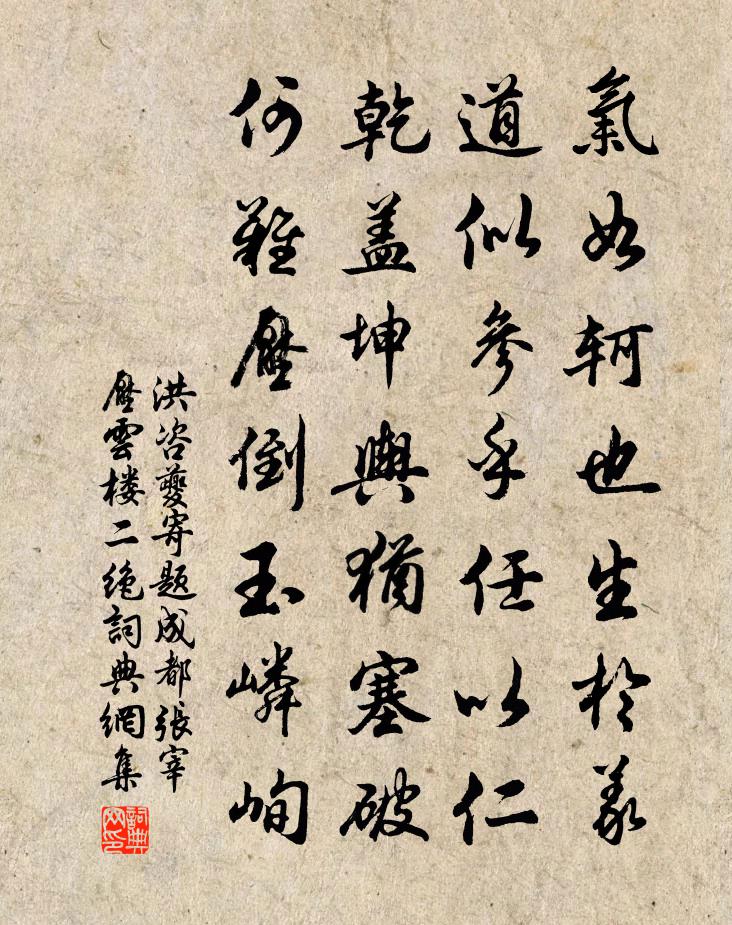 氣如軻也生於義
道似參乎任以仁
乾盖坤輿猶塞破
何難壓倒玉嶙峋
洪咨夔寄題成都張宰
壓雲楼二絶詞典網集
詞典网印